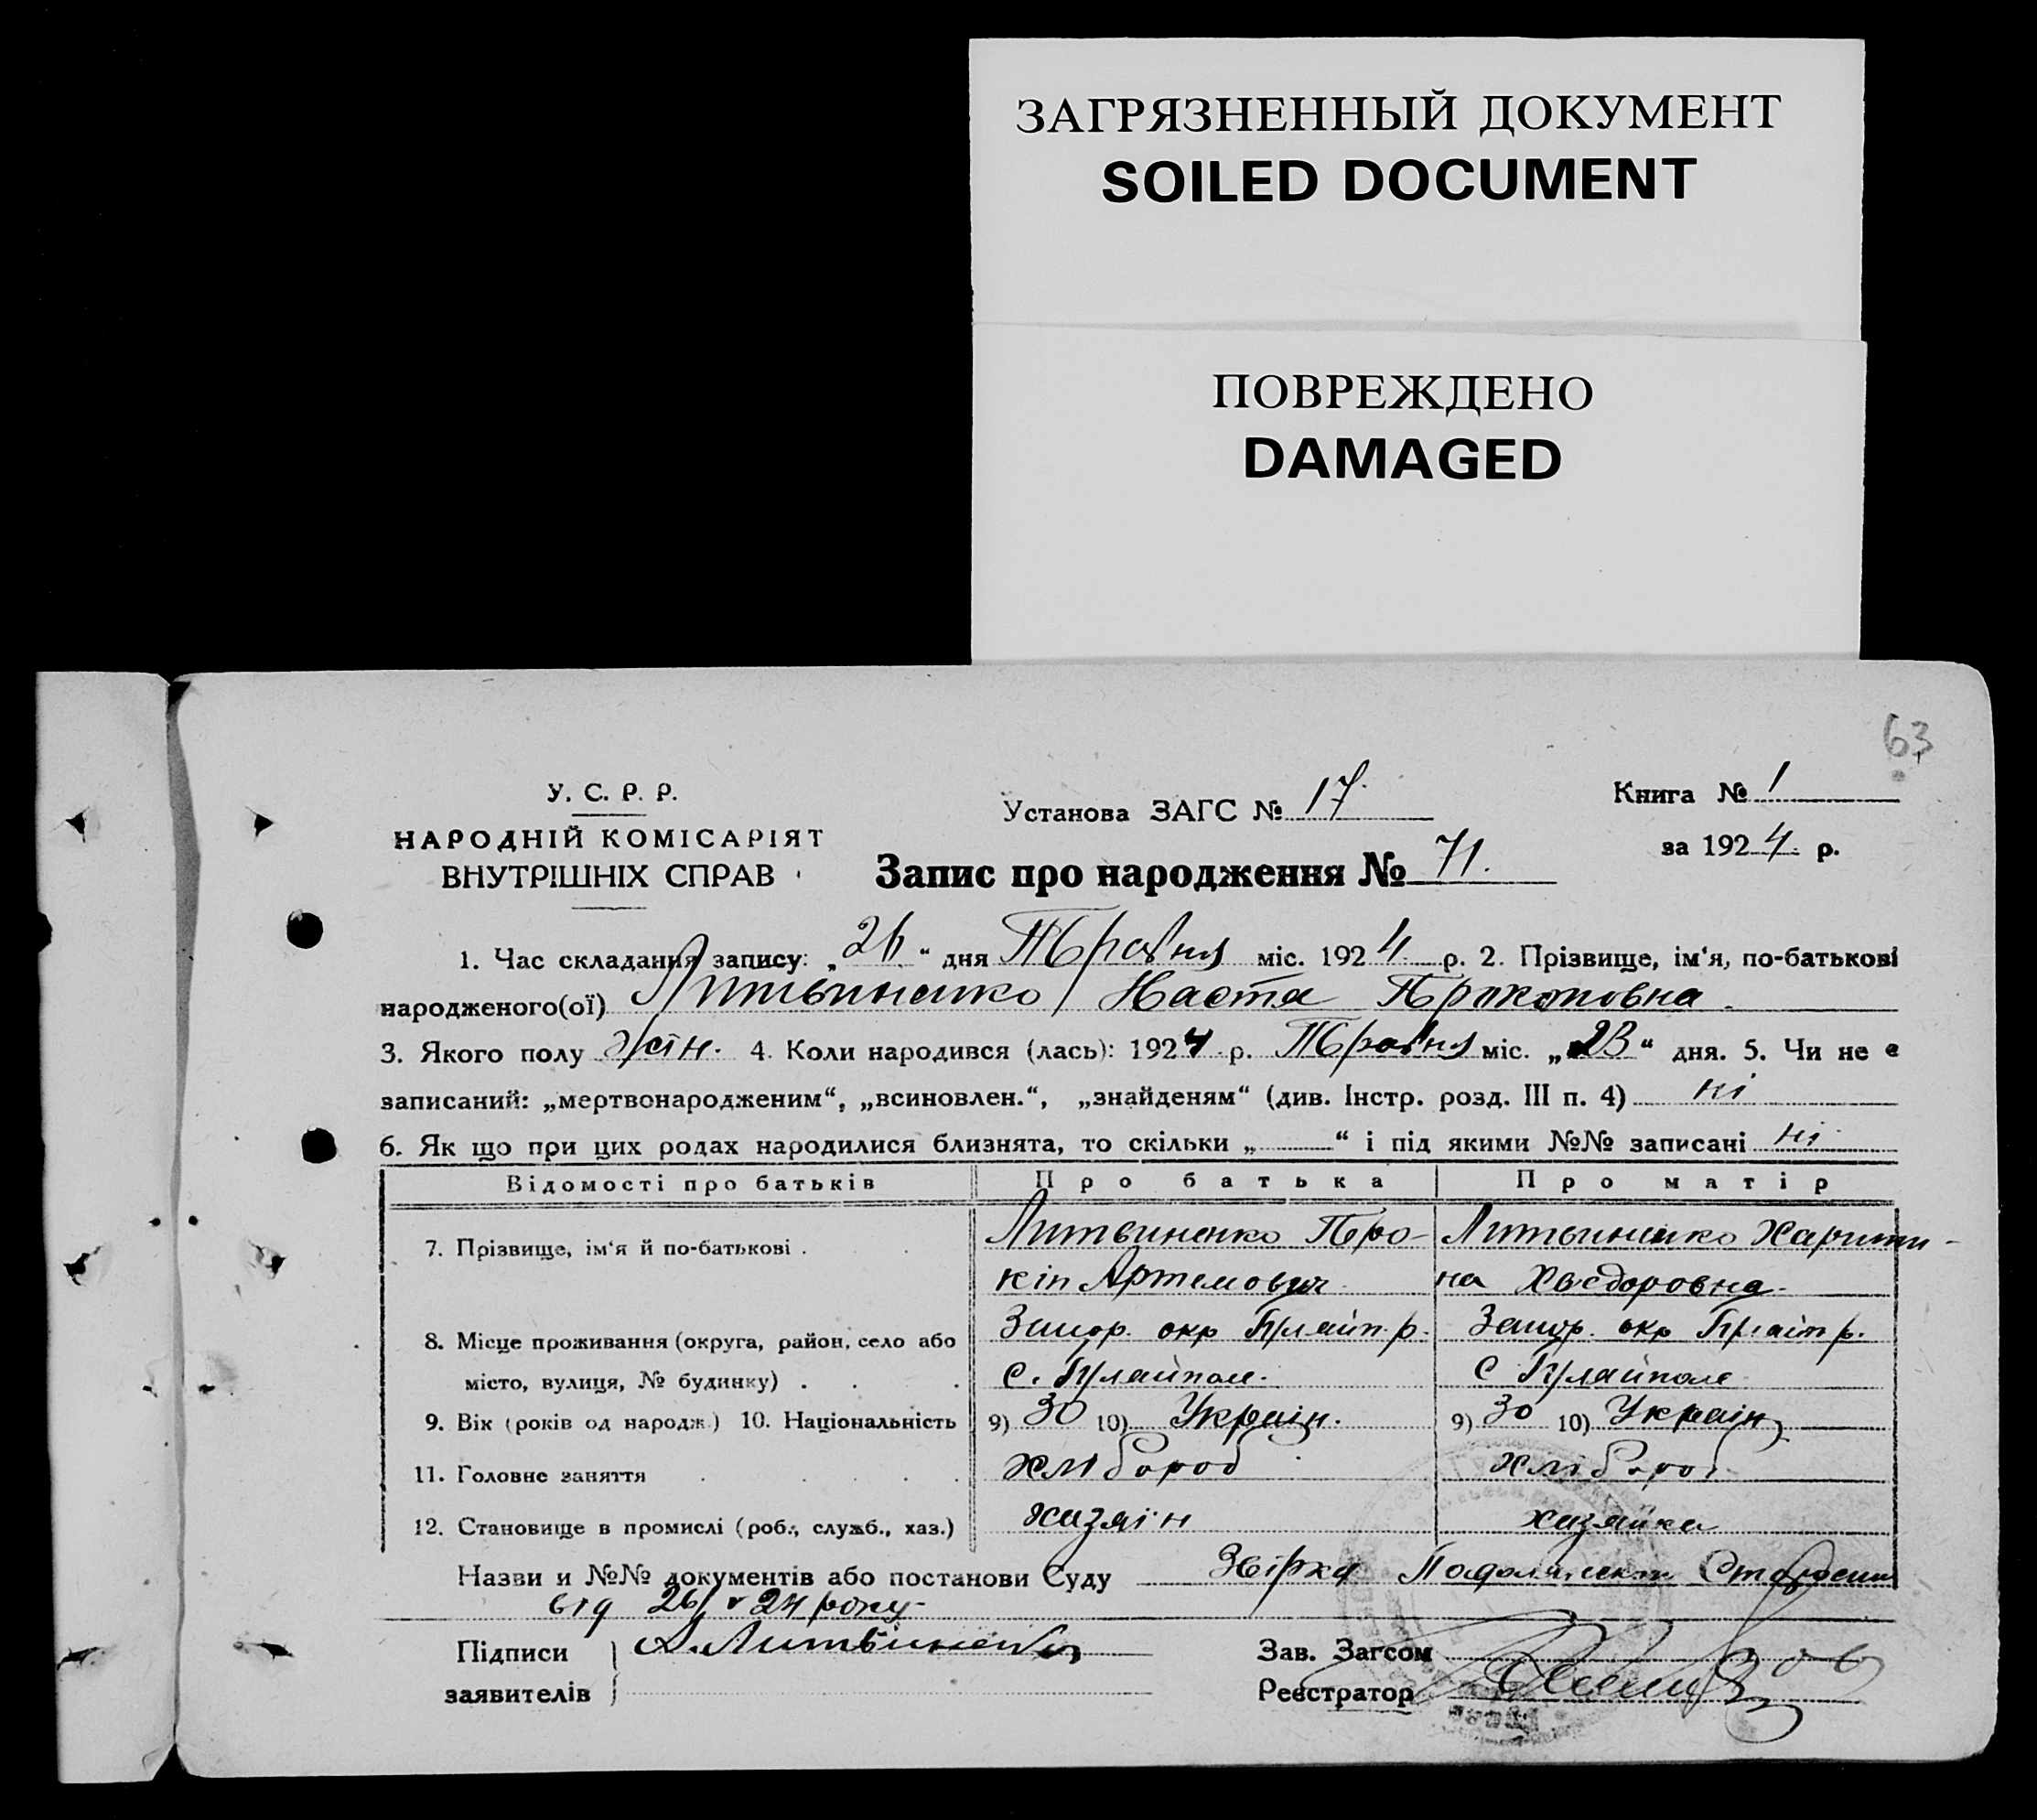 ЗАГРЯЗНЕННЫЙ ДОКУМЕНТ
SOILED DOCUMENT
ПОВРЕЖДЕНО
DAMAGED
63
У. С. Р. Р.
НАРОДНІЙ КОМІСАРІЯТ
ВНУТРІШНІХ СПРАВ
Установа ЗАГС № 17.
Книга № 1
за 1924 р.
Запис про народження № 71.
1. Час складання запису: „26“ дня Травня міс. 1924 р. 2. Прізвище, ім'я, по-батькові
народженого(ої) Литвиненко Настя Прокоповна
3. Якого полу жін. 4. Коли народився (лась): 1924 р. Травня міс. „23“ дня. 5. Чи не є
записаний: „мертвонародженим“, „всиновлен.“, „знайденям“ (див. Інстр. розд. III п. 4) ні
6. Як що при цих родах народилися близнята, то скільки „ “ і під якими №№ записані ні
Відомості про батьків Про батька Про матір
7. Прізвище, ім'я й по-батькові . Литвиненко Про- Литвиненко Харити-
кіп Артемович на Хведоровна
8. Місце проживання (округа, район, село або Запор. окр р. Запор. окр р.
місто, вулиця, № будинку) . с. Гуляйполе с Гуляйполе
9. Вік (років од народж.) 10. Національність 9) 30 10) Україн. 9) 30 10) Україн
11. Головне заняття хлібороб хлібороб
12. Становище в промислі (роб., служб., хаз.) хазяін хазяйка
Назви и №№ документів або постанови Суду
від 26/V 24 року
Підписи Литвиненко Зав. Загсом
заявителів Реєстратор